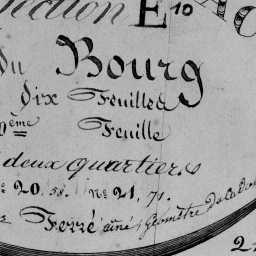 ection E 10
du Bourg
Dix Feuilles
9ème Feuille
deux quartiers
20, 58. n.º 21, 71.
Ferré aîné, Géomètre
2